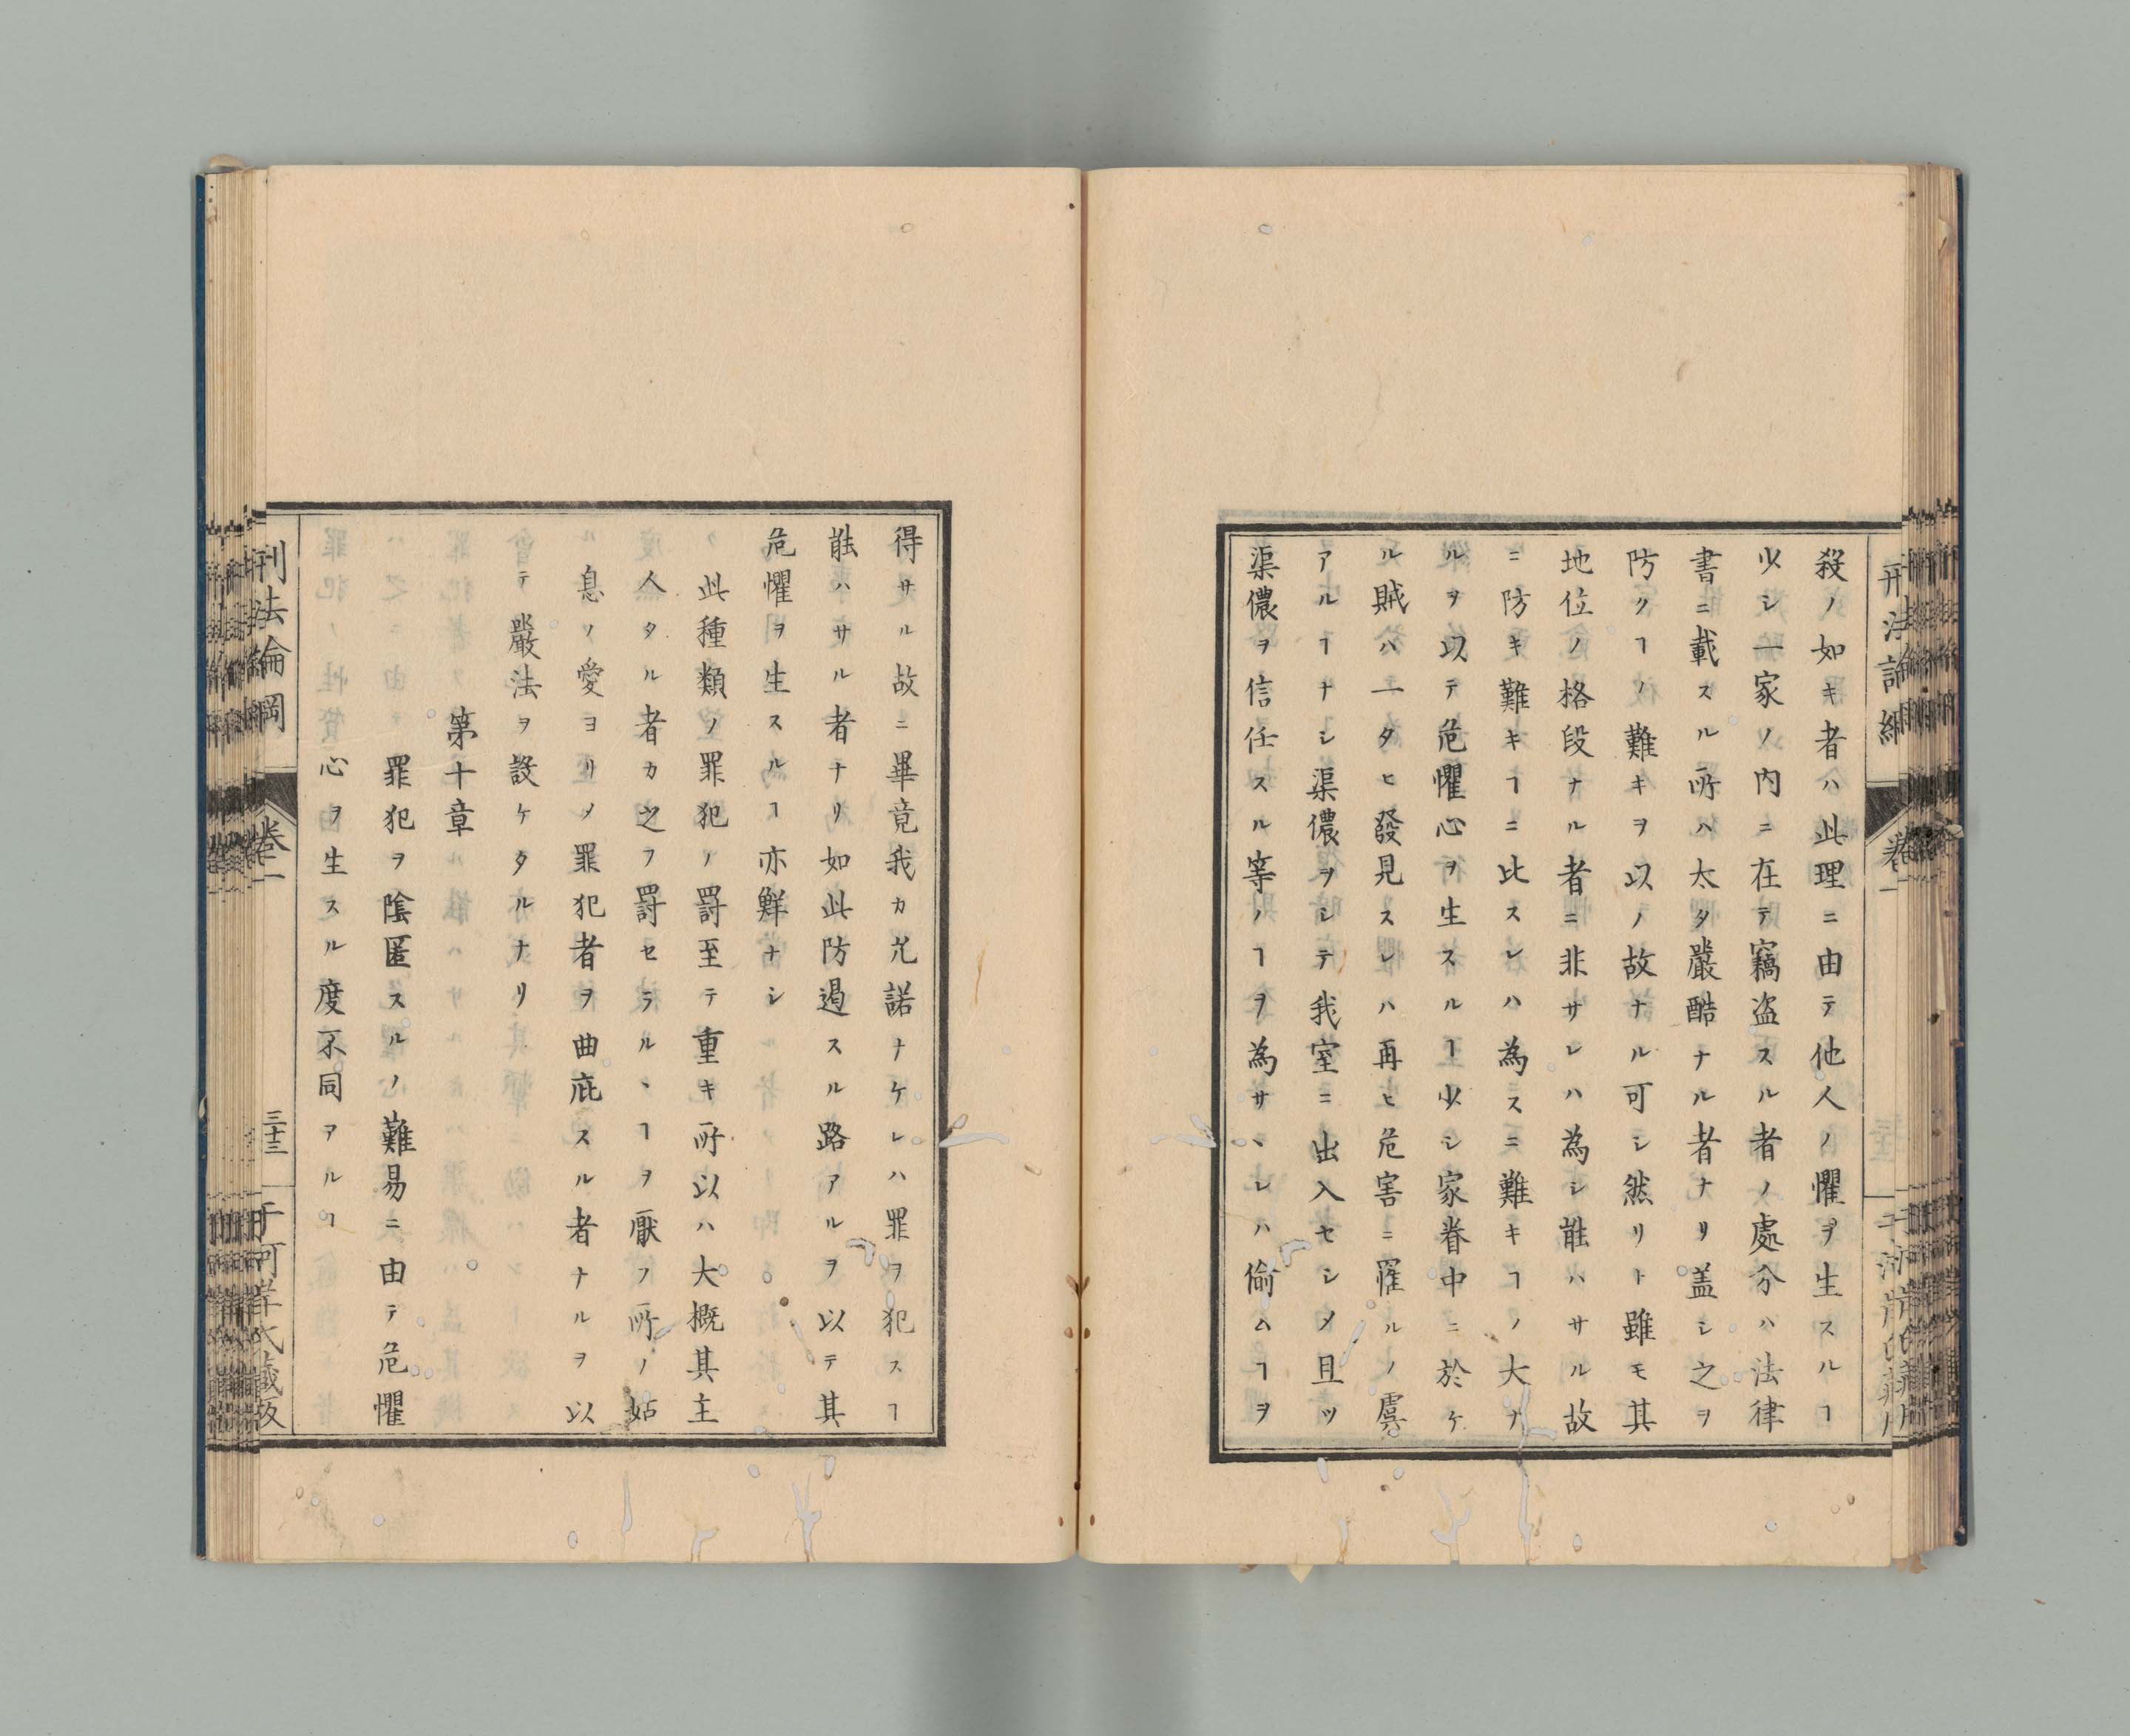 殺ノ如キ者ハ此理ニ由テ他人ノ懼ヲ生スルヿ
少シ一家ノ內ニ在テ竊盗スル者ノ處分ハ法律
書ニ載スル所ハ太タ嚴酷ナル者ナリ盖シ之ヲ
防クヿノ難キヲ以ノ故ナル可シ然リト雖モ其
地位ノ格段ナル者ニ非サレハ為シ能ハサル故
ニ防キ難キヿニ比スレハ為スニ難キヿノ大ナ
ルヲ以テ危懼心ヲ生スルヿ少シ家眷中ニ於ケ
ル賊ハ一タヒ發見スレハ再ヒ危害ニ罹ルノ虞
アルヿナシ渠儂ヲシテ我室ニ出入セシメ且ツ
渠儂ヲ信任スル等ノヿヲ為サヽレハ偷ムヿヲ
得サル故ニ畢竟我カ允諾ナケレハ罪ヲ犯スヿ
能ハサル者ナリ如此防遏スル路アルヲ以テ其
危懼ヲ生スルヿ亦鮮ナシ
此種類ノ罪犯ノ罸至テ重キ所以ハ大概其主
人タル者カ之フ罸セラルヽヿヲ厭フ所ノ姑
息ノ愛ヨリメ罪犯者ヲ曲庇スル者ナルヲ以
テ嚴法ヲ設ケタルナリ
第十章
罪犯ヲ陰匿スルノ難易ニ由テ危懼
心ヲ生スル度不同アルヿ
刑法論綱
卷一
三十三